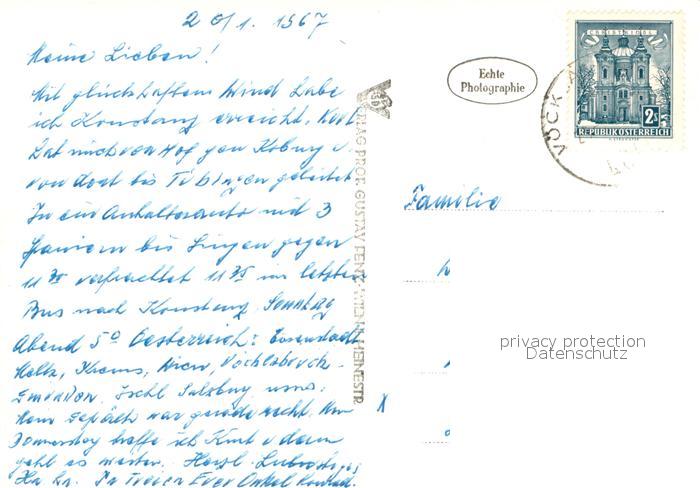 20/1. 1967
Meine Lieben!
Mit glückhaftem Wind habe
ich Konstanz erreicht. Kurt
hat mich von Hof gen Koburg u.
von dort bis Tübingen geleitet
In ein Anhalterauto mit 3
bis Singen gegen
11 verfrachtet 11 35 im letzten
Bus nach Konstanz. Sonntag
Abend 5 Oesterreich: Eisenstadt
Melk, Krems, Wien, Vöcklabruck
Gmunden. Ischl Salzburg usw.
Mein Gepäck war gerade recht. Am
Donnerstag treffe ich Kurt u dann
geht es weiter. Herzl.
In Treuen Euer Onkel Konrad.
VERLAG PROF. GUSTAV
Echte
Photographie
CHRISTKINDL
2S
REPUBLIK ÖSTERREICH
VÖCK
Familie
privacy protection
Datenschutz